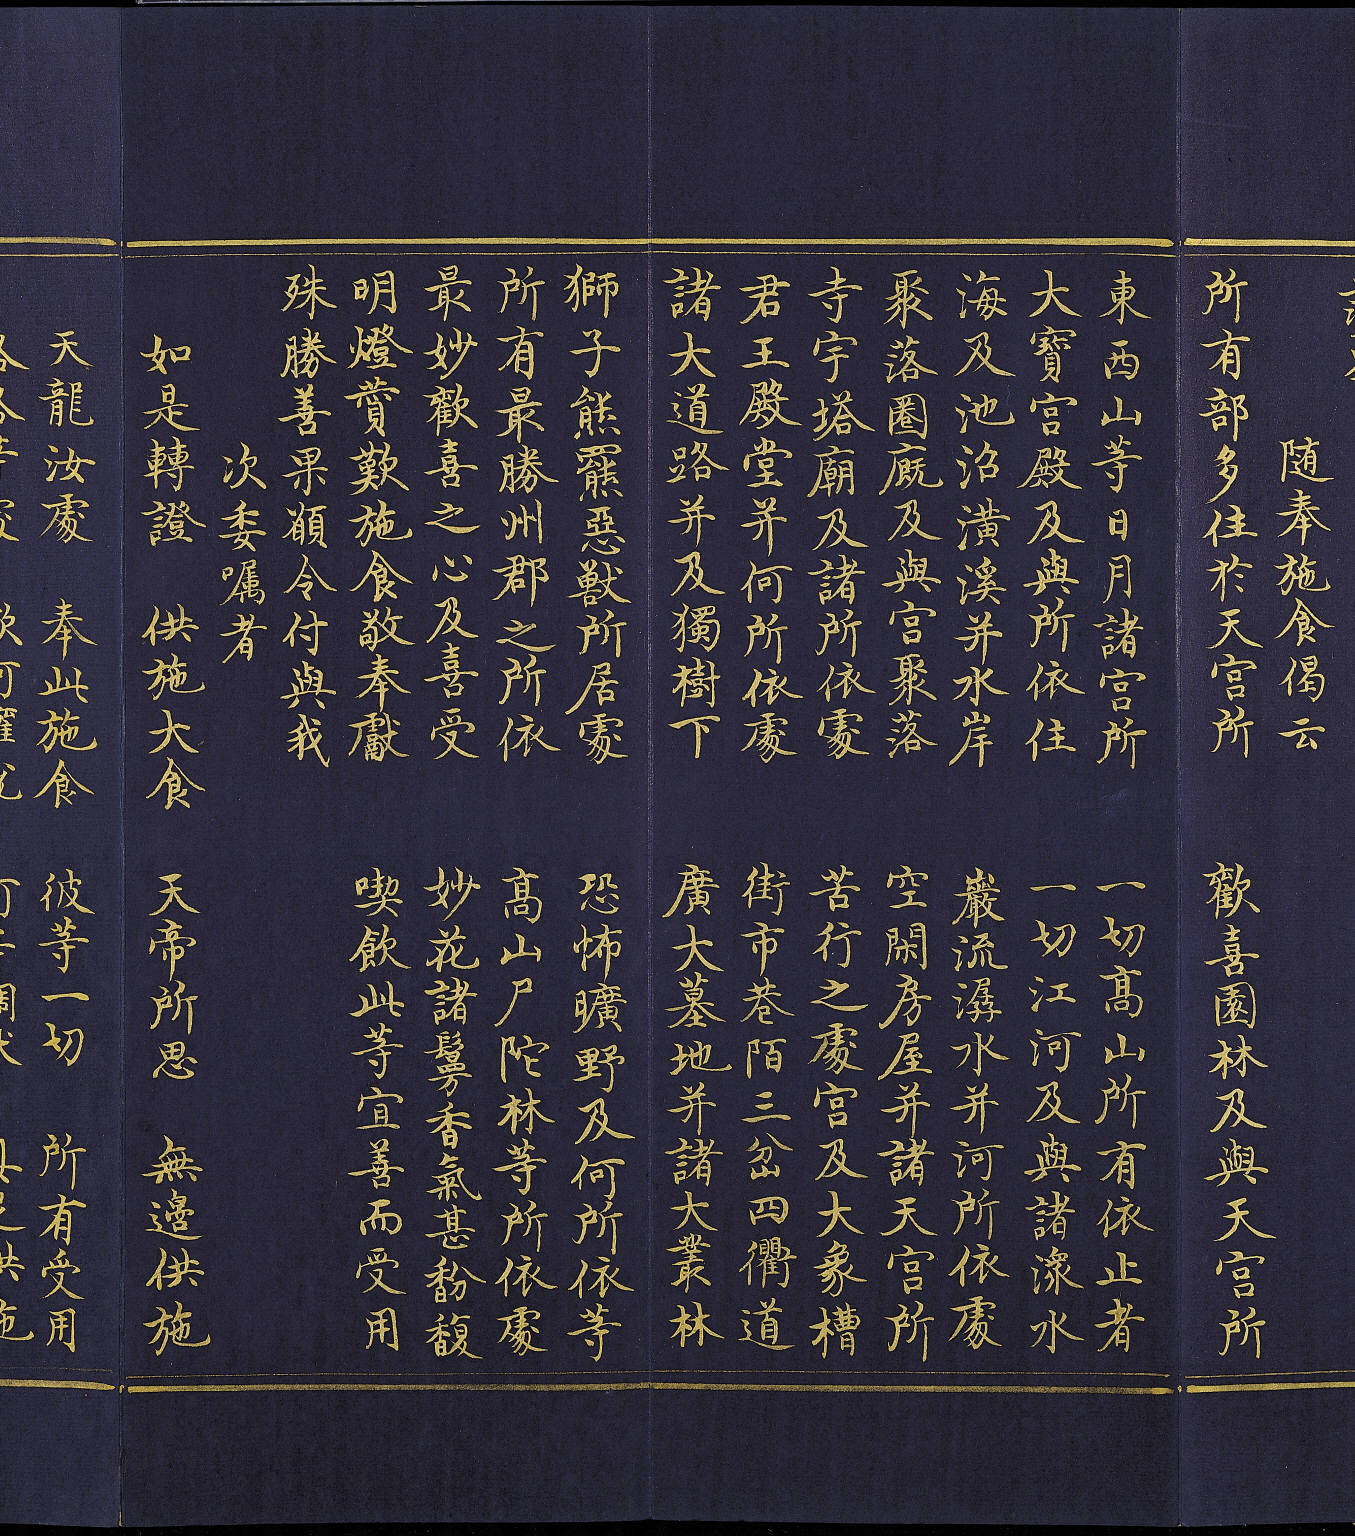 随奉施食偈云
所有部多住於天宫所 歡喜園林及與天宫所
東西山等日月諸宫所 一切髙山所有依止者
大寶宫殿及與所依住 一切江河及與諸濴水
海及池沼潢溪并水岸 巖流潺水并河所依處
聚落圈厩及與宫聚落 空閑房屋并諸天宫所
寺宇塔廟及諸所依處 苦行之處宫及大象槽
君王殿堂并何所依處 街市巷陌三岔四衢道
諸大道路并及獨樹下 廣大墓地并諸大叢林
獅子熊羆惡獣所居處 恐怖曠野及何所依等
所有最勝州郡之所依 髙山尸陀林等所依處
最妙歡喜之心及喜受 妙花諸鬘香氣甚馚馥
明燈賛歎施食敬奉獻 喫飲此等宜善而受用
殊勝善果願令付與我
次委嘱者
如是轉證 供施大食 天帝所思 無邊供施
天龍汝處 奉此施食 彼等一切 所有受用